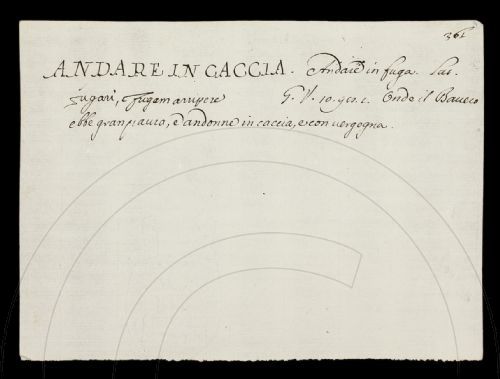 361
ANDARE IN CACCIA. Andare in fuga. Lat.
fugari, fugam arripere G. V. 10. 910. 1. Onde il Bavero
ebbe gran paura, e andonne in caccia, e con vergogna.